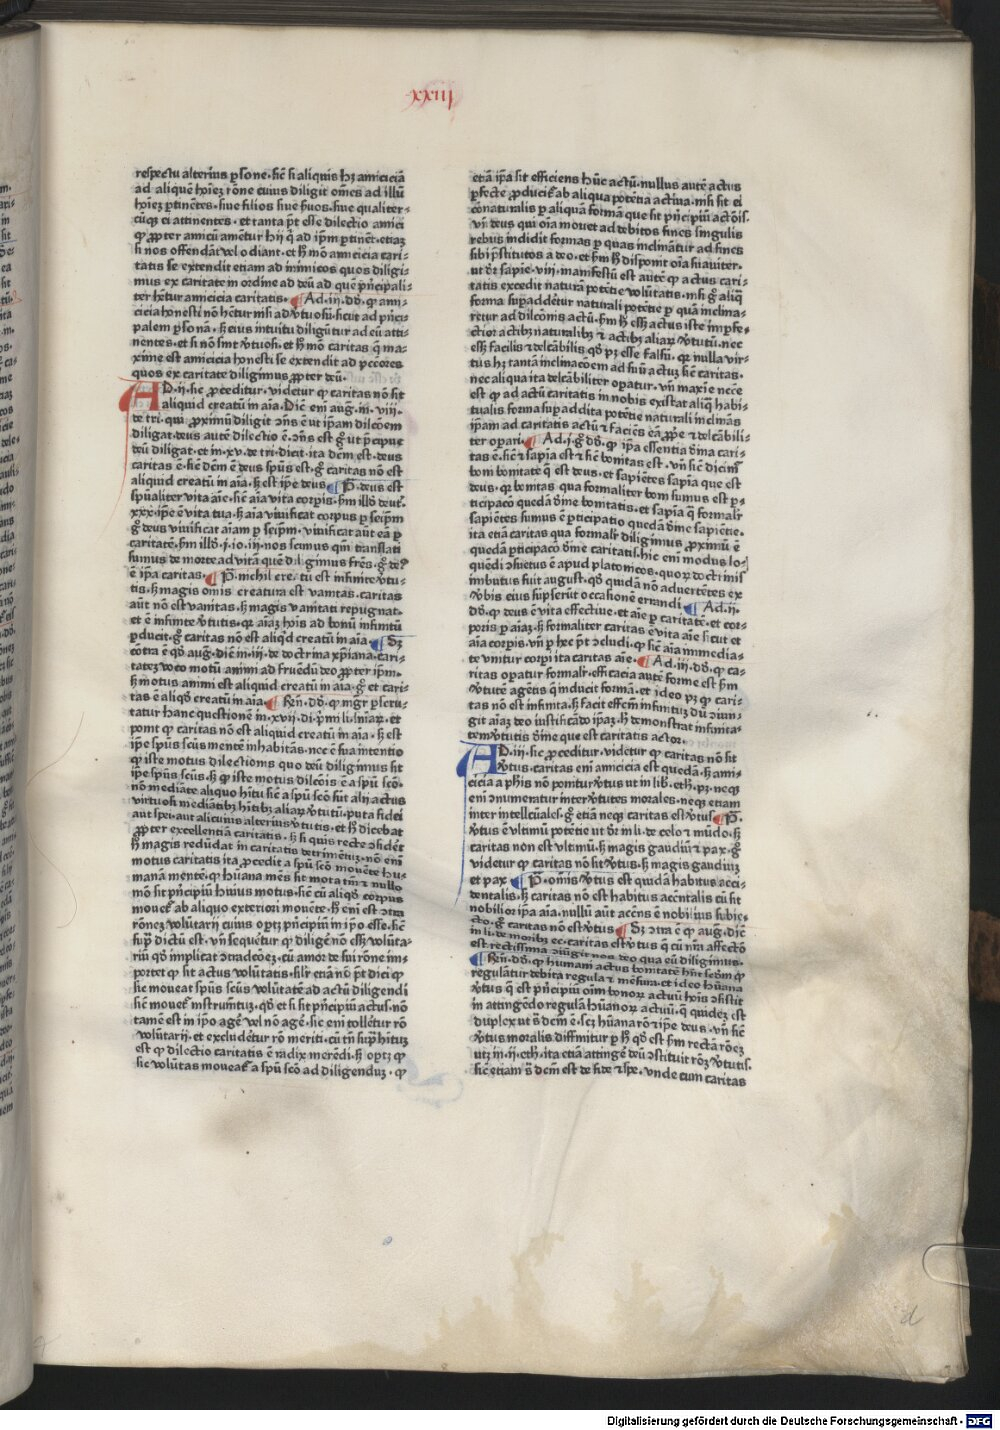 xxiii
respectu alterius ꝑsone·sic̄ si aliquis hꝫ amiciciā
ad aliquē hoīeꝫ rōne cuius diligit om̄es ad illū
hoīeꝫ ꝑtinētes·siue filios siue ẜuos·siue qualiter-
cūqꝫ ei attinentes·et tanta p̄t esse dilectio amici
ꝙ ꝓpter amicū amētur hij q̄ ad ip̄m ꝑtinēt·etiaꝫ
si nos offendāt vel odiant·et hͦ mō amicicia cari-
tatis se extendit etiam ad inimicos quos diligi-
mus ex caritate in ordine ad deū ad quē prīcipali-
ter hētur amicicia caritatis· Ad·iij·dō·ꝙ ami-
cicia honesti nō hētur nisi ad vtuosū·sicut ad prīci-
palem ꝑsonā·sꝫ eius intuitu diligūtur ad eū atti-
nentes·et si nō sint vtuosi·et hͦ mō caritas q̄ ma-
xime est amicicia honesti se extendit ad pctōres
quos ex caritate diligimus ꝓpter deū·
AD·ij·sic ꝓceditur·videtur ꝙ caritas nō sit
aliquid creatū in aīa·Dic̄ enī auḡ·in·viij·
de tri·qui proximū diligit ↄn̄s ē ut ip̄am dilcōem
diligat·deus autē dilectio ē·ↄn̄s est gͦ ut p̄cipue
deū diligat·et in·xv·de tri·dicit·ita dcm̄ est·deus
caritas ē·sic̄ dcm̄ ē deus spūs est·gͦ caritas nō est
aliquid creatū in aīa·sꝫ est ip̄e deus P̄·deus est
spūaliter vita aīe·sic̄ aīa vita corpis·ẜm illd̄ deut̄·
xxx·ip̄e ē vita tua·sꝫ aīa viuificat corpus ꝑ seip̄m
gͦ deus viuificat aīam ꝑ seip̄m·viuificat aūt eā ꝑ
caritatē·ẜm illd̄·j·io·iij·nos scimus qm̄ translati
sumus de morte ad vitā quē diligimus fr̄es·gͦ deꝰ
ē ip̄a caritas· P̄·nichil creatū est infinite vtu-
tis·sꝫ magis om̄is creatura est vanitas·caritas
aūt nō est vanitas·sꝫ magis vanitati repugnat·
et ē infinite vtutis·qꝛ aīaꝫ hoīs ad bonū infinitū
ꝑducit·gͦ caritas nō est aliqͥd creatū in aīa Sꝫ
cōtra ē qd̄ auḡ·dic̄ in·iij·de doctrina xp̄iana·cari-
tateꝫ voco motū animi ad fruēdū deo ꝓpter ip̄m·
sꝫ motus animi est aliquid creatū in aīa·gͦ et cari-
tas ē aliqd̄ creatū in aīa Rn̄·dō·ꝙ mgr̄ ꝑscru-
tatur hanc questionē in·xvij·di·pͥmi li·sn̄iaꝝ·et
ponit ꝙ caritas nō est aliquid creatū in aīa·sꝫ est
ip̄e spūs scūs mentē inhabitās·nec ē sua intentio
ꝙ iste motus dilectionis quo deū diligimus sit
ip̄e spūs scūs·sꝫ ꝙ iste motus dilcōis ē a spū scō·
nō mediāte aliquo hītu sic̄ a spū scō sūt alij actus
virtuosi mediātibꝫ hītibꝫ aliaꝝ vtutū·puta fidei
aut spei·aut alicuius alterius vtutis·et hͦ dicebat
ꝓpter excellentiā caritatis·sꝫ si quis recte ↄsidet
hͦ magis redūdat in caritatis detrimētuꝫ·nō enī
motus caritatis ita ꝓcedit a spū scō mouēte hu-
manā mentē·ꝙ hūana mēs sit mota tm̄ ⁊ nullo
mō sit prīcipiū huius motus·sic̄ cū aliqd̄ corpus
mouet̄ ab aliquo exteriori mouēte·hͦ enī est ↄtra
rōneꝫ volūtarij cuius optꝫ prīcipiū in ip̄o esse·sic̄
supͣ dictū est·vn̄ sequetur ꝙ diligē nō essꝫ volūta-
riū qd̄ implicat ↄtradcōeꝫ·cū amor de sui rōne im-
portet ꝙ sit actus volūtatis·silr̄ etiā nō p̄t dici ꝙ
sic moueat spūs scūs volūtatē ad actū diligendi
sic̄ mouet̄ instrum̄tuꝫ·qd̄ et si sit prīcipiū actus·nō
tamē est in ip̄o agē vel nō agē·sic enī tolletur rō
volūtarij·et excludetur rō meriti·cū tn̄ supͣ hītuꝫ
est ꝙ dilectio caritatis ē radix merēdi·sꝫ optꝫ ꝙ
sic volūtas moueat̄ a spū scō ad diligenduꝫ·ꝙ
etiā ip̄a sit efficiens hūc actū·nullus autē actus
ꝑfecte ꝓducit̄ ab aliqua potētia actiua·nisi sit ei
cōnaturalis ꝑ aliquā formā que sit prīcipiū actōis·
vn̄ deus qui oīa mouet ad debitos fines singulis
rebus indidit formas ꝑ quas inclinātur ad fines
sibi p̄stitutos a deo·et ẜm hͦ disponit oīa suauiter·
ut dr̄ sapie·viij·manifestū est autē ꝙ actus cari-
tatis excedit naturā potētie volūtatis·nisi gͦ aliqͣ
forma supͣadderetur naturali potētie ꝑ quā inclina-
retur ad dilcōnis actū·ẜm hͦ essꝫ actus iste imꝑfe-
ctior actibꝫ naturalibꝫ ⁊ actibꝫ aliaꝝ vtutū·nec
essꝫ facilis ⁊ delcābilis qd̄ pꝫ esse falsū·qꝛ nulla vir-
tus hꝫ tantā inclinacōem ad suū actuꝫ sic̄ caritas·
nec aliqua ita delcābiliter oꝑatur·vn̄ maxīe necē
est ꝙ ad actū caritatis in nobis existat aliqͣ habi-
tualis forma supͣaddita potētie naturali inclināns
ip̄am ad caritatis actū ⁊ faciēs eā ꝓpte ⁊ delcābili-
ter oꝑari· Ad·j·gͦ dō·ꝙ ip̄a essentia dīna cari-
tas ē·sic̄ ⁊ sapīa est ⁊ sic̄ bonitas est·vn̄ sic̄ dicimꝰ
boni bonitate q̄ est deus·et sapiētes sapīa que est
deus·qꝛ bonitas qua formaliter boni sumus est ꝑ-
ticipacō quedā dīne bonitatis·et sapīa q̄ formalr̄
sapiētes sumus ē ꝑticipatio quedā dīne sapiētie·
ita etiā caritas qua formalr̄ diligimus proximū ē
quedā ꝑticipacō dīne caritatis·hic enī modus lo-
quēdi ↄsuetus ē apud platonicos·quoꝝ doctrinis
imbutus fuit august·qd̄ quidā nō aduertētes ex
vbis eius supserūt occasionē errandi Ad·ij·
dō·ꝙ deus ē vita effectiue·et aīe ꝑ caritatē·et cor-
poris ꝑ aīaꝫ·sꝫ formaliter caritas ē vita aīe sicut et
aīa corpis·vn̄ ꝑ hͦ p̄t ↄcludi·ꝙ sic̄ aīa immedia-
te vnitur corpi ita caritas aīe· Ad·iij·dō·ꝙ ca-
ritas oꝑatur formalr̄·efficacia autē forme est ẜm
vtutē agētis q̄ inducit formā·et ideo pꝫ ꝙ cari-
tas nō est infinita·sꝫ facit effcm̄ infinituꝫ dū ↄiun-
git aīaꝫ deo iustificādo ip̄aꝫ·hͦ demonstrat infinita-
tem vtutis dīne que est caritatis actor·
AD·iij·sic ꝓceditur·videtur ꝙ caritas nō sit
vtus·caritas enī amicicia est quedā·sꝫ ami-
cicia a phīs nō ponitur vtus ut in lib·eth·pꝫ·neqꝫ
enī ↄnumeratur inter vtutes morales·neqꝫ etiam
inter intellcūales·gͦ etiā neqꝫ caritas est vtus P̄·
vtus ē vltimū potētie ut dr̄ in li·de celo ⁊ mūdo·sꝫ
caritas non est vltimū·sꝫ magis gaudiū ⁊ pax·gͦ
videtur ꝙ caritas nō sit vtus·sꝫ magis gaudiuꝫ
et pax P̄·om̄is vtus est quidā habitus acci-
dentalis·sꝫ caritas nō est habitus accn̄talis cū sit
nobilior ip̄a aīa·nullū aūt accn̄s ē nobilius subie-
cto·gͦ caritas nō est vtus Sꝫ ↄtra ē ꝙ auḡ·dic̄
in li·de moribꝫ ec·caritas est vtus q̄ cū nr̄a affectō
est rectissima ↄiūgit nos deo qua eū diligimus·
Rn̄·dō·ꝙ humani actus bonitatē hn̄t scd̄m ꝙ
regulātur debita regula ⁊ mēsura·et ideo hūana
vtus q̄ est prīcipiū oīm bonoꝝ actuū hoīs ↄsistit
in attingēdo regulā hūanoꝝ actuū·q̄ quideꝫ est
duplex ut sͣ dcm̄ ē·scꝫ hūana rō ⁊ ip̄e deus·vn̄ sic̄
vtus moralis diffinitur ꝑ hͦ qd̄ est ẜm rectā rōeꝫ
utꝫ in·ij·eth·ita etiā attingē deū ↄstituit rōeꝫ vtutis·
sic̄ etiam sͣ dcm̄ est de fide ⁊ spe·vnde cum caritas
d
Digitalisierung gefördert durch die Deutsche Forschungsgemeinschaft - DFG